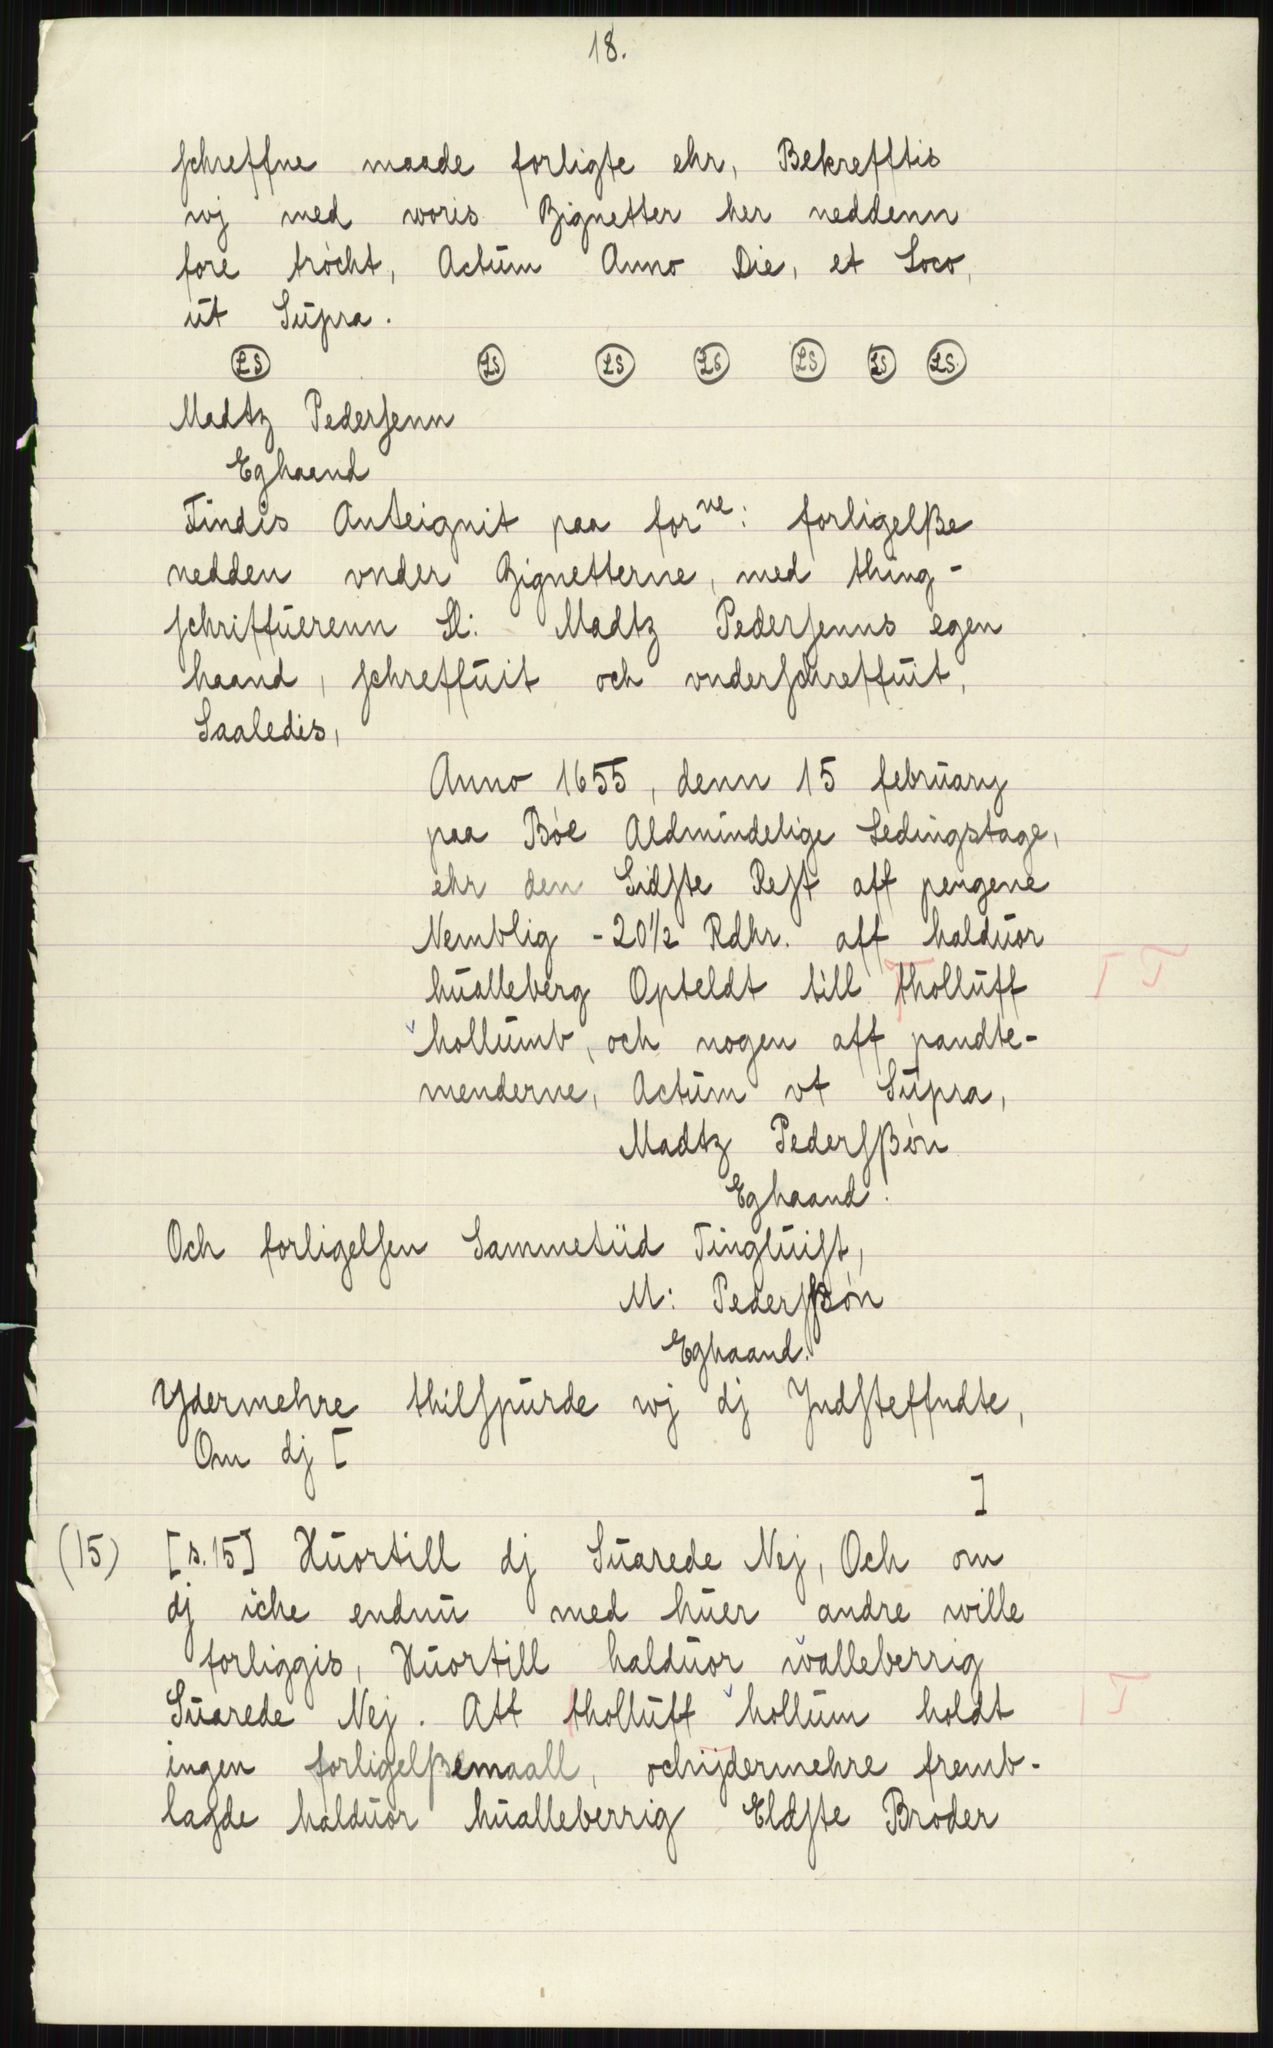 18.
schreffne maade forligte ehr, Bekrefftis
wj med woris Zignetter her neddenn
fore tröcht, Actum Anno Die, et Loco,
ut Supra.
LS LS LS LS LS LS LS.
Madtz Pedersenn
Eghaend
Findis Anteignit paa forne: forligelße
nedden vnder Zignetterne, med thing-
schriffuerenn Sl: Madtz Pedersenns egen
haand, schreffuit och vnderschreffuit,
Saaledis,
Anno 1655, denn 15 february
paa Böe Aldmindelige Ledingstage,
ehr den Sidste Rest aff pengene
Nemblig - 20½ Rdhr. aff halduor
hualleberg Opteldt till tholluff
hollumb, och nogen aff pandte-
menderne, Actum vt Supra,
Madtz Pedersßön
Eghaand.
Och forligelsen Sammetiid Tingluist,
M: Pedersßön
Eghaand.
Ydermehre thilspurde wj dj Jndsteffndte,
Om dj [
]
(15) [s.15] Huortill dj Suarede Nej, Och om
dj iche endnu med huer andre wille
forliggis, Huortill halduor walleberrig
Suarede Nej. Att tholluff hollum holdt
ingen forligelßemaall, ochijdermehre fremb-
lagde halduor hualleberrig Eldste Broder